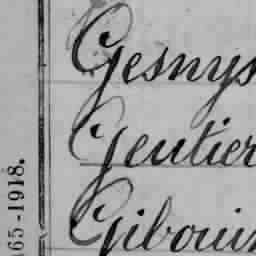 Gesnys
Gentier
Giboui
65-1918.